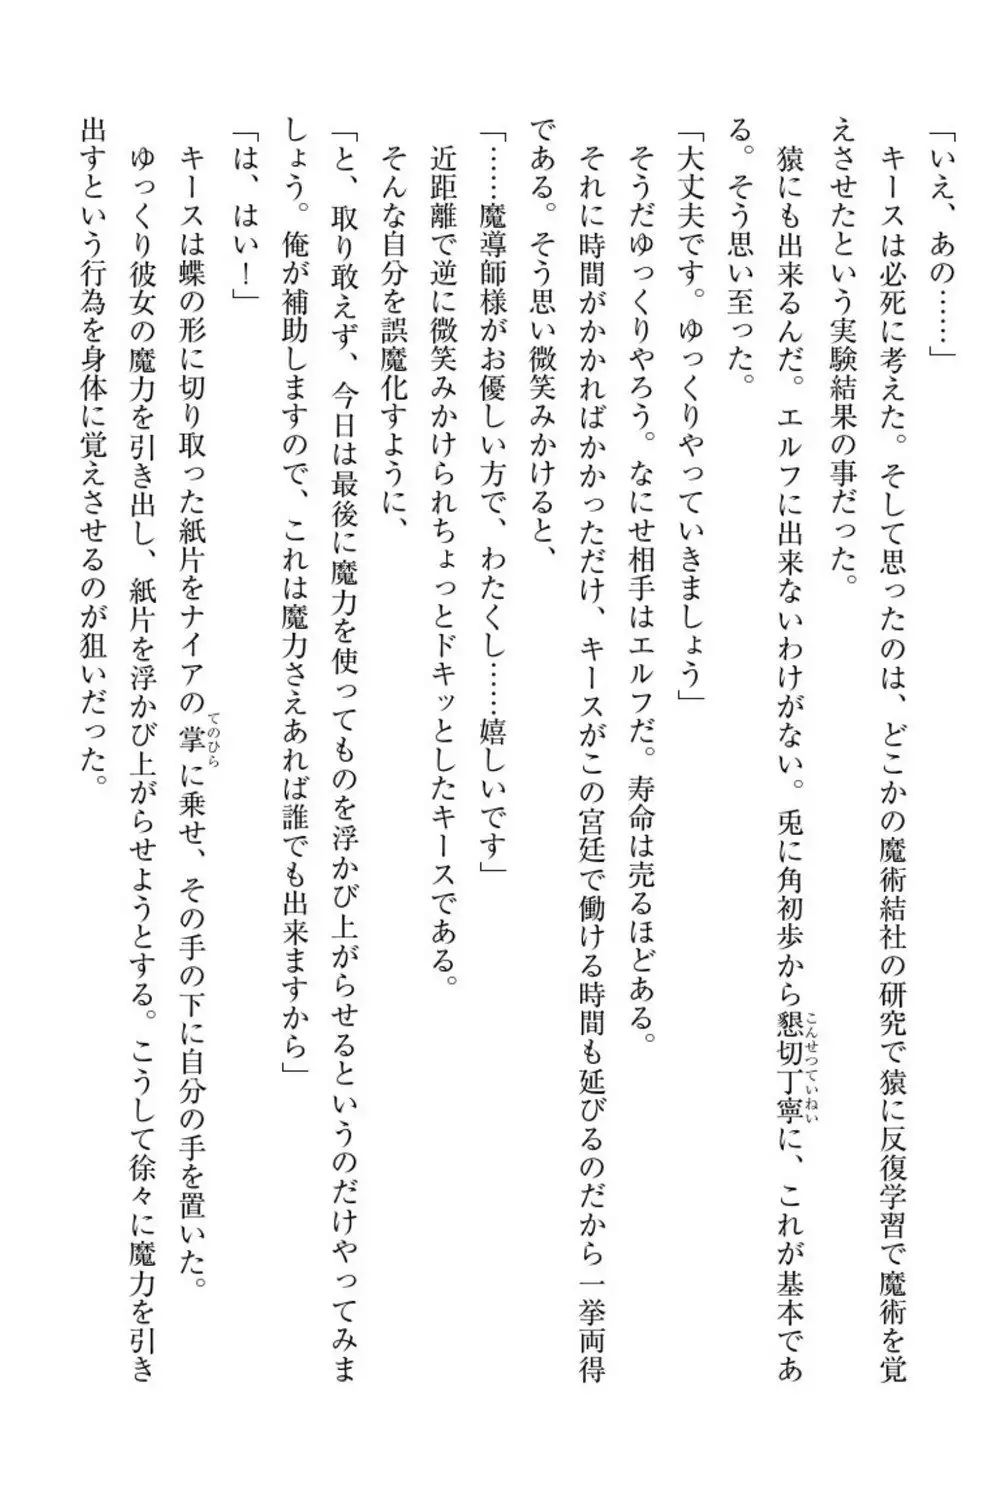 「いえ、あの……」
　キースは必死に考えた。そして思ったのは、どこかの魔術結社の研究で猿に反復学習で魔術を覚
えさせたという実験結果の事だった。
　猿にも出来るんだ。エルフに出来ないわけがない。兎に角初歩から懇切丁寧に、これが基本であ
る。そう思い至った。
「大丈夫です。ゆっくりやっていきましょう」
　そうだゆっくりやろう。なにせ相手はエルフだ。寿命は売るほどある。
　それに時間がかかればかかっただけ、キースがこの宮廷で働ける時間も延びるのだから一挙両得
である。そう思い微笑みかけると、
「……魔導師様がお優しい方で、わたくし……嬉しいです」
　近距離で逆に微笑みかけられちょっとドキッとしたキースである。
　そんな自分を誤魔化すように、
「と、取り敢えず、今日は最後に魔力を使ってものを浮かび上がらせるというのだけやってみま
しょう。俺が補助しますので、これは魔力さえあれば誰でも出来ますから」
「は、はい！」
　キースは蝶の形に切り取った紙片をナイアの掌に乗せ、その手の下に自分の手を置いた。
てのひら
　ゆっくり彼女の魔力を引き出し、紙片を浮かび上がらせようとする。こうして徐々に魔力を引き
出すという行為を身体に覚えさせるのが狙いだった。
こんせつていねい